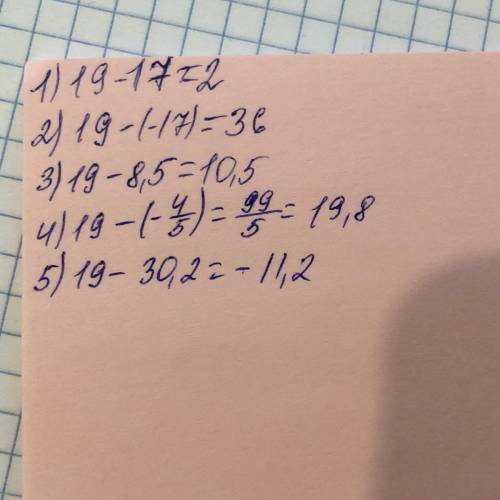 1) 19-17=2
2) 19-(-17)=36
3) 19-8,5=10,5
4) 19-(-4/5)=99/5=19,8
5) 19-30,2=-11,2